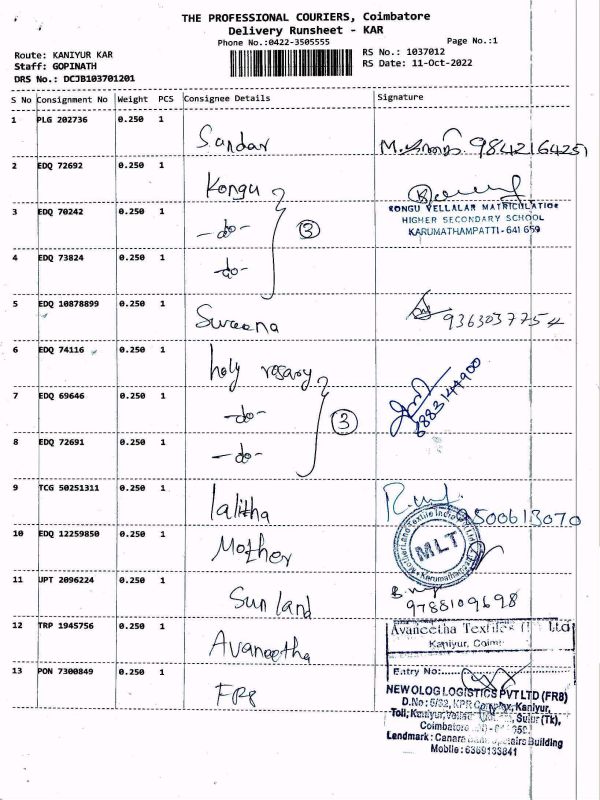 THE PROFESSIONAL COURIERS, Coimbatore
Delivery Runsheet - KAR
Phone No.:0422-3505555
Page No.:1
Route: KANIYUR KAR
Staff: GOPINATH
DRS No.: DCJB103701201
RS No.: 1037012
RS Date: 11-Oct-2022
S No Consignment No Weight PCS Consignee Details Signature
1 PLG 202736 0.250 1 Sundar 9842164251
2 EDQ 72692 0.250 1 Kongu
KONGU VELLALAR MATRICULATION
HIGHER SECONDARY SCHOOL
KARUMATHAMPATTI - 641 659
3 EDQ 70242 0.250 1 -do- 3
4 EDQ 73824 0.250 1 -do-
5 EDQ 10878899 0.250 1 Sweena 9363037754
6 EDQ 74116 0.250 1 holy rosary
7 EDQ 69646 0.250 1 -do- 3 6883144900
8 EDQ 72691 0.250 1 -do-
9 TCG 50251311 0.250 1 lalitha 9500613070
10 EDQ 12259850 0.250 1 Mother
MLT
11 UPT 2096224 0.250 1 Sun land 9788109698
12 TRP 1945756 0.250 1 Avaneetha
Avaneetha Textiles Ltd
Kaniyur,
13 PON 7300849 0.250 1 FR8
Entry No:
NEW OLOG LOGISTICS PVT LTD (FR8)
D.No: 6/32, KPR Complex, Kaniyur,
Toll, Kaniyur, Sulur (Tk),
Coimbatore
Landmark: Canara Upstairs Building
Mobile: 6369133841